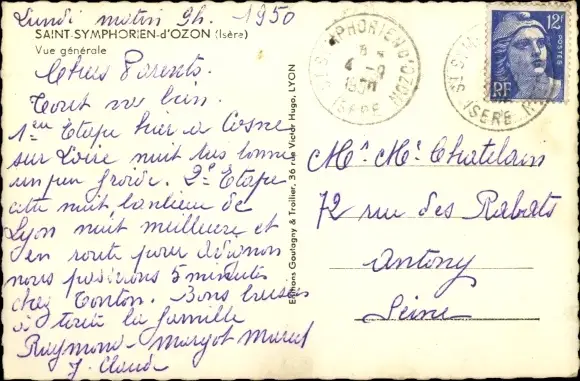 Lundi matin 9h. 1950
SAINT-SYMPHORIEN-d'OZON (Isère)
Vue générale
Chers Parents.
Tout va bien.
1ère Etape hier a Cosne
sur Loire nuit très bonne
un peu froide. 2e Etape
cette nuit banlieue de
Lyon nuit meilleure et
en route pour Avignon
nous passerons 5 minutes
chez Tonton. Bons baisers
à toute la famille
Raymond - Margot Marcel
J. Claude
Editions Goutagny & Trollier, 36 rue Victor Hugo, LYON
ST SYMPHORIEN D'OZON
4 - 9
1950
ISERE
12F
RF
ST SYM
ISERE
Mr Me Chatelain
72 rue des Rabats
Antony
Seine